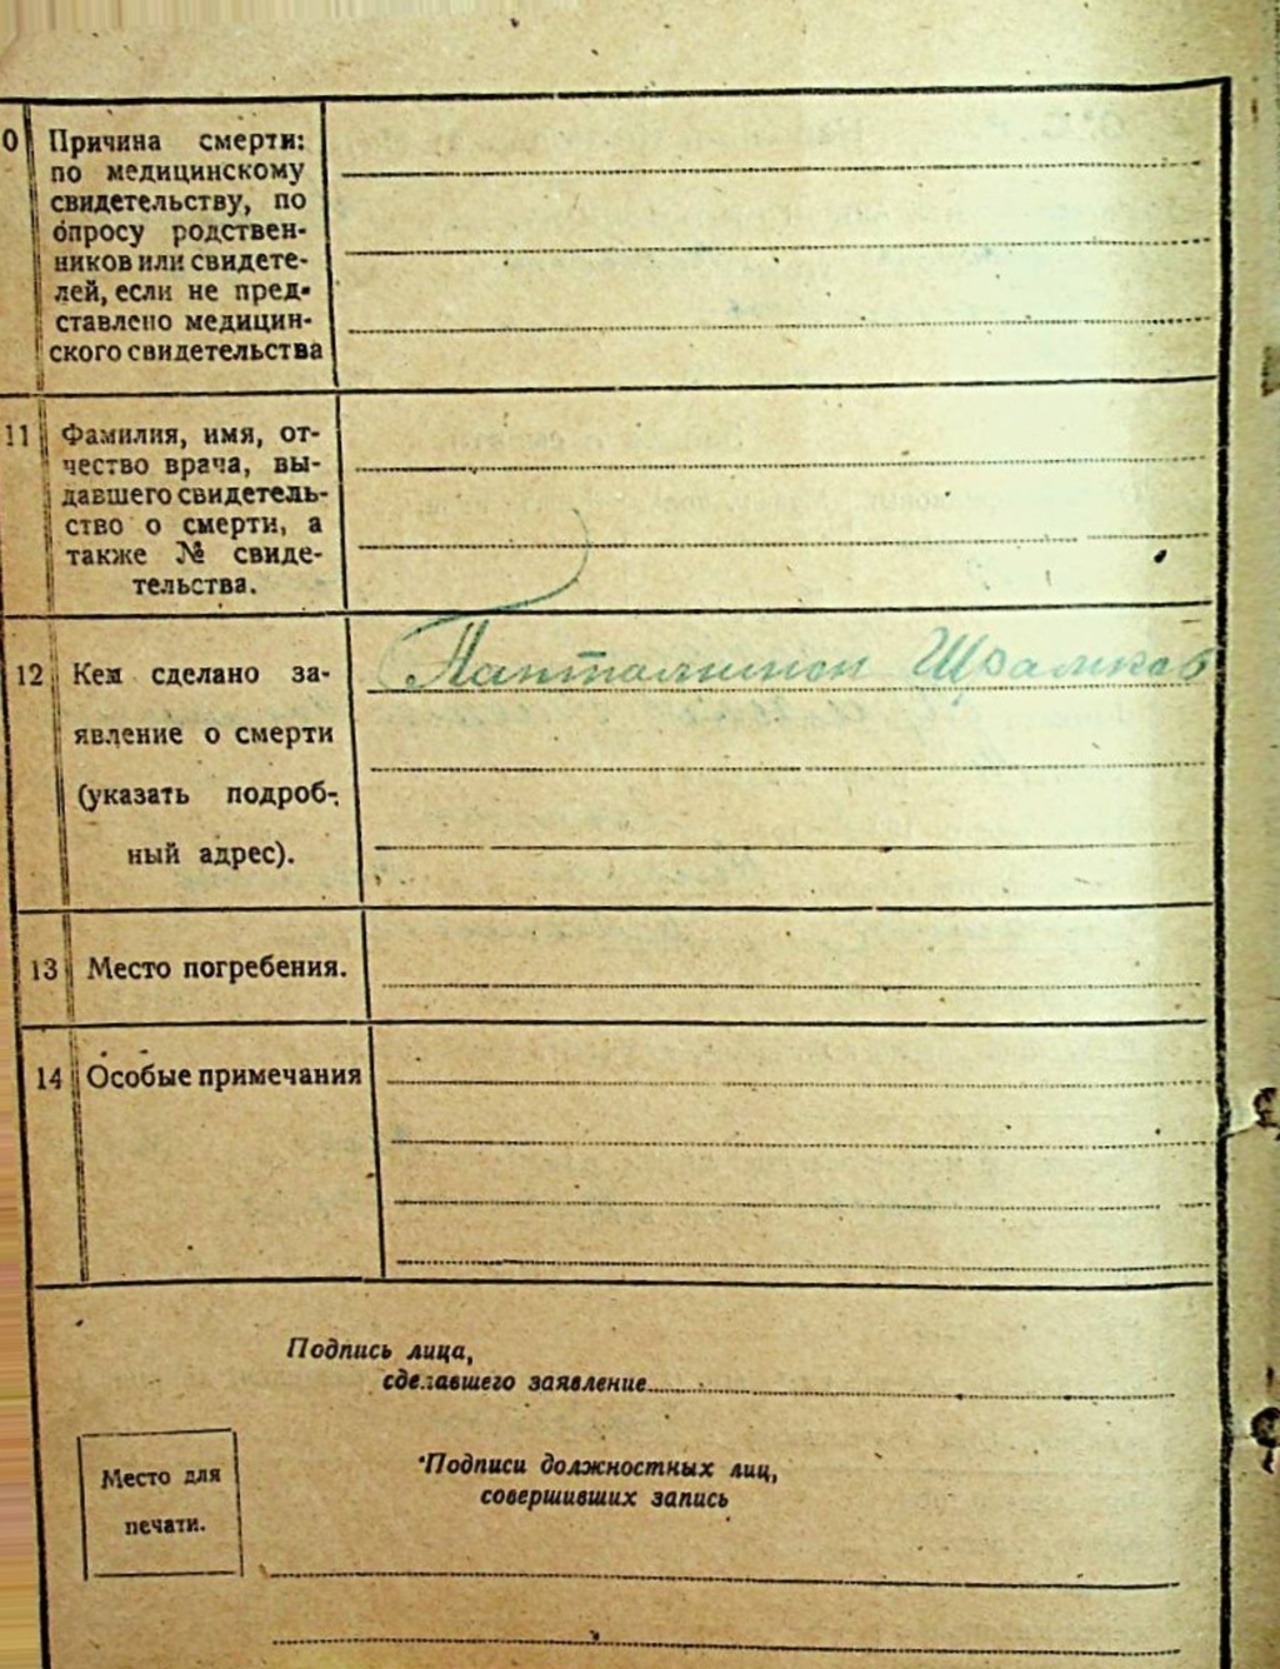 0 Причина смерти:
по медицинскому
свидетельству, по
опросу родствен-
ников или свидете-
лей, если не пред-
ставлено медицин-
ского свидетельства
11 Фамилия, имя, от-
чество врача, вы-
давшего свидетель-
ство о смерти, а
также № свиде-
тельства.
12 Кем сделано за-
явление о смерти
(указать подроб-
ный адрес).
Шрамков
13 Место погребения.
14 Особые примечания
Подпись лица,
сделавшего заявление
Подписи должностных лиц,
совершивших запись
Место для
печати.